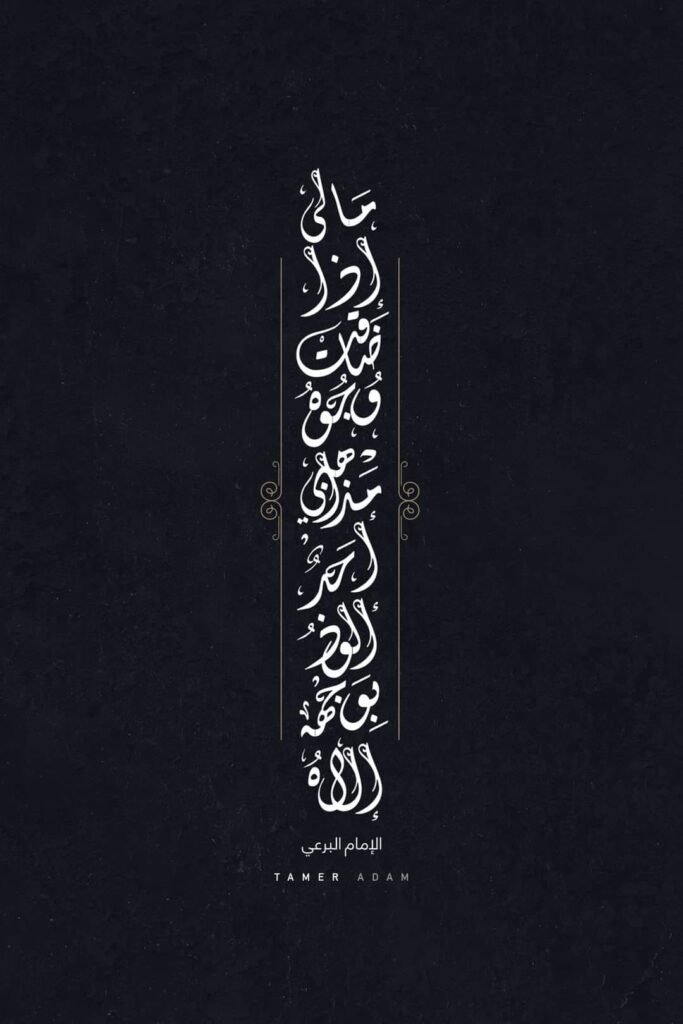 مَالي
إذا
ضَاقت
وُجُوهُ
مَذاهبي
أحَدٌ
ألوذُ
بِوَجهه
إلاهُ
الإمام البرعي
TAMER ADAM